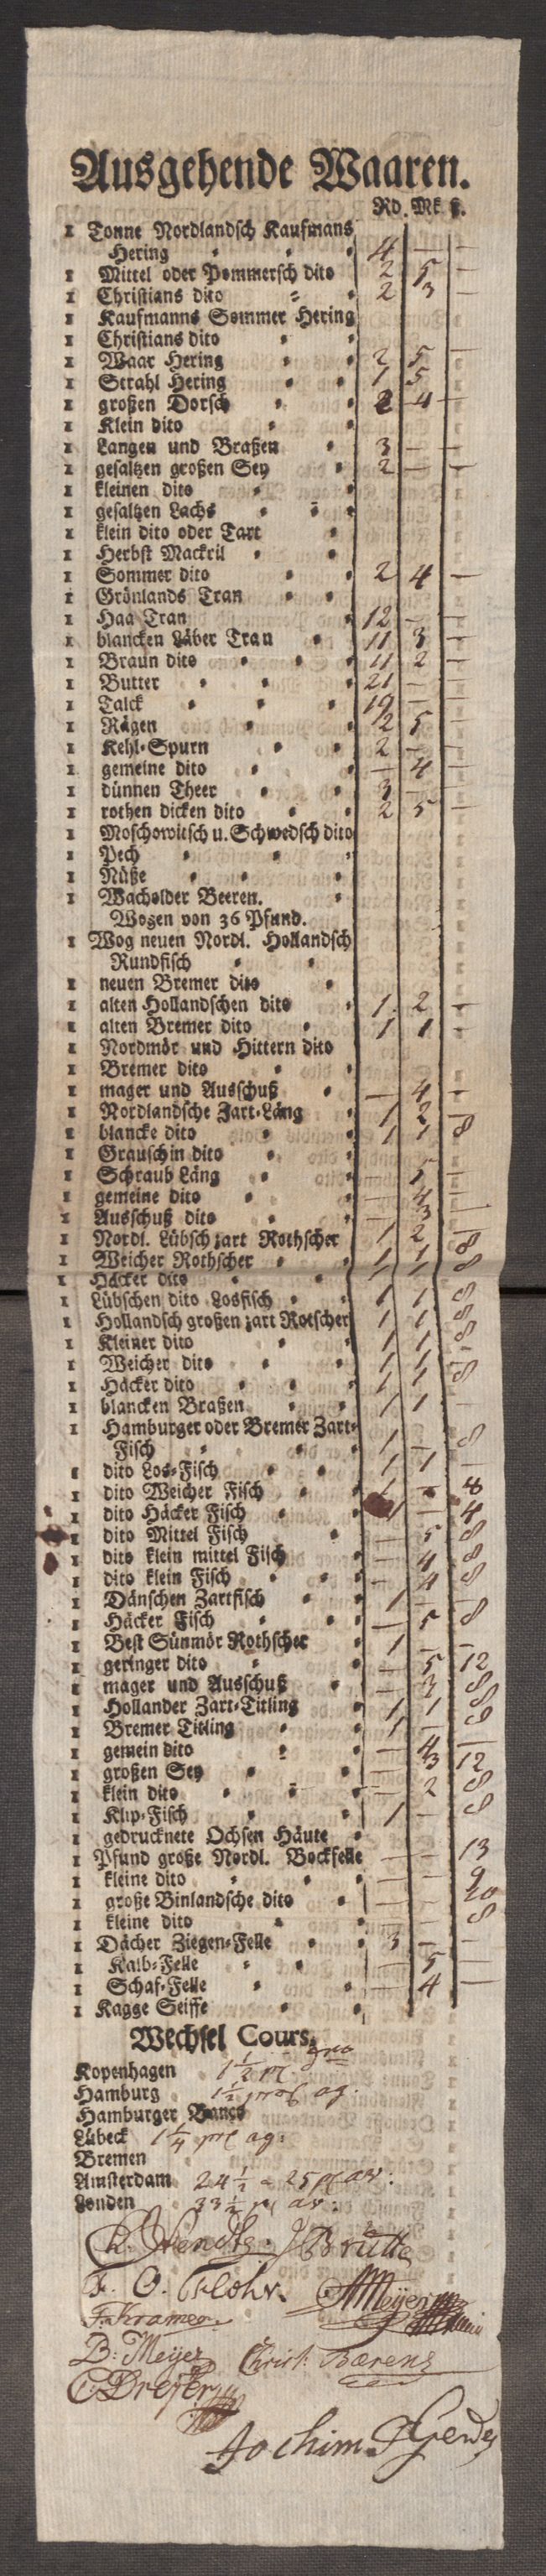 Ausgehende Waaren.
Rd. Mk ß.
1 Tonne Nordlandsch Kaufmans
Hering 4 — —
1 Mittel oder Pommersch dito 2 5 —
1 Christians dito 2 3 —
1 Kaufmanns Sommer Hering
1 Christians dito
1 Waar Hering 2 5 —
1 Strahl Hering 1 5
1 großen Dorsch 2 4 —
1 Klein dito
1 Langen und Braßen 3 — —
1 gesaltzen großen Sey 2 — —
1 kleinen dito
1 gesaltzen Lachs
1 klein dito oder Tart
1 Herbst Mackril
1 Sommer dito 2 4 —
1 Grönlands Tran
1 Haa Tran 12 — —
1 blancken Läber Tran 11 3 —
1 Braun dito 11 2 —
1 Butter 21 —
1 Talck 19 — —
1 Rägen 2 5 —
1 Kehl-Spurn 2 — —
1 gemeine dito — 4 —
1 dünnen Theer 3 — —
1 rothen dicken dito 2 5 —
1 Moschowitsch u. Schwedsch dito
1 Pech
1 Nüße
1 Wacholder Beeren.
Wogen von 36 Pfund.
1 Wog neuen Nordl. Hollandsch
Rundfisch
1 neuen Bremer dito
1 alten Hollandschen dito 1 2 —
1 alten Bremer dito 1 1 —
1 Nordmör und Hittern dito
1 Bremer dito
1 mager und Ausschuß — 4 —
1 Nordlandsche Zart-Läng 1 2
1 blancke dito 1 1 8
1 Grauschin dito
1 Schraub Läng 5 —
1 gemeine dito — 4 —
1 Ausschuß dito — 3
1 Nordl. Lübsch zart Rothscher 1 2
1 Weicher Rothscher 1 1 8
1 Häcker dito 1 1 8
1 Lübschen dito Losfisch 1 1 8
1 Hollandsch großen zart Rotscher 1 1 8
1 Kleiner dito 1 1 8
1 Weicher dito 1 1
1 Häcker dito 1 1 8
1 blancken Braßen 1 1 —
1 Hamburger oder Bremer Zart-
Fisch 1 — 8
1 dito Los-Fisch 1 1 —
1 dito Weicher Fisch 1 — 8
1 dito Häcker Fisch 1 — 4
1 dito Mittel Fisch — 5 8
1 dito klein mittel Fisch — 4 8
1 dito klein Fisch — 4 8
1 Dänschen Zartfisch 1 —
1 Häcker Fisch — 5 8
1 Best Sünmör Rothscher 1 — —
1 geringer dito — 5 12
1 mager und Ausschuß — 3 8
1 Hollander Zart-Titling 1 1 8
1 Bremer Titling 1 —
1 gemein dito — 4 —
1 großen Sey — 3 12
1 klein dito — 2 8
1 Klip-Fisch 1 — 8
1 gedrucknete Ochsen Häute
1 Pfund große Nordl. Bockfelle — — 13
1 kleine dito — — 9
1 große Binlandsche dito — — 20
1 kleine dito — — 8
1 Dächer Ziegen-Felle 3 — —
1 Kalb-Felle — 5 —
1 Schaf-Felle — 4 —
1 Kagge Seiffe
Wechsel Cours.
Kopenhagen 1½
Hamburg 1½ ag.
Hamburger Banco
Lübeck 1¼ ag.
Bremen
Amsterdam 24½ a 25
Londen 33½
J Brütte
F. O. Flohr. Meijer
F. Kramer
B: Meijer Christ. Bærens
C Dreyer
Jochim Gerdes